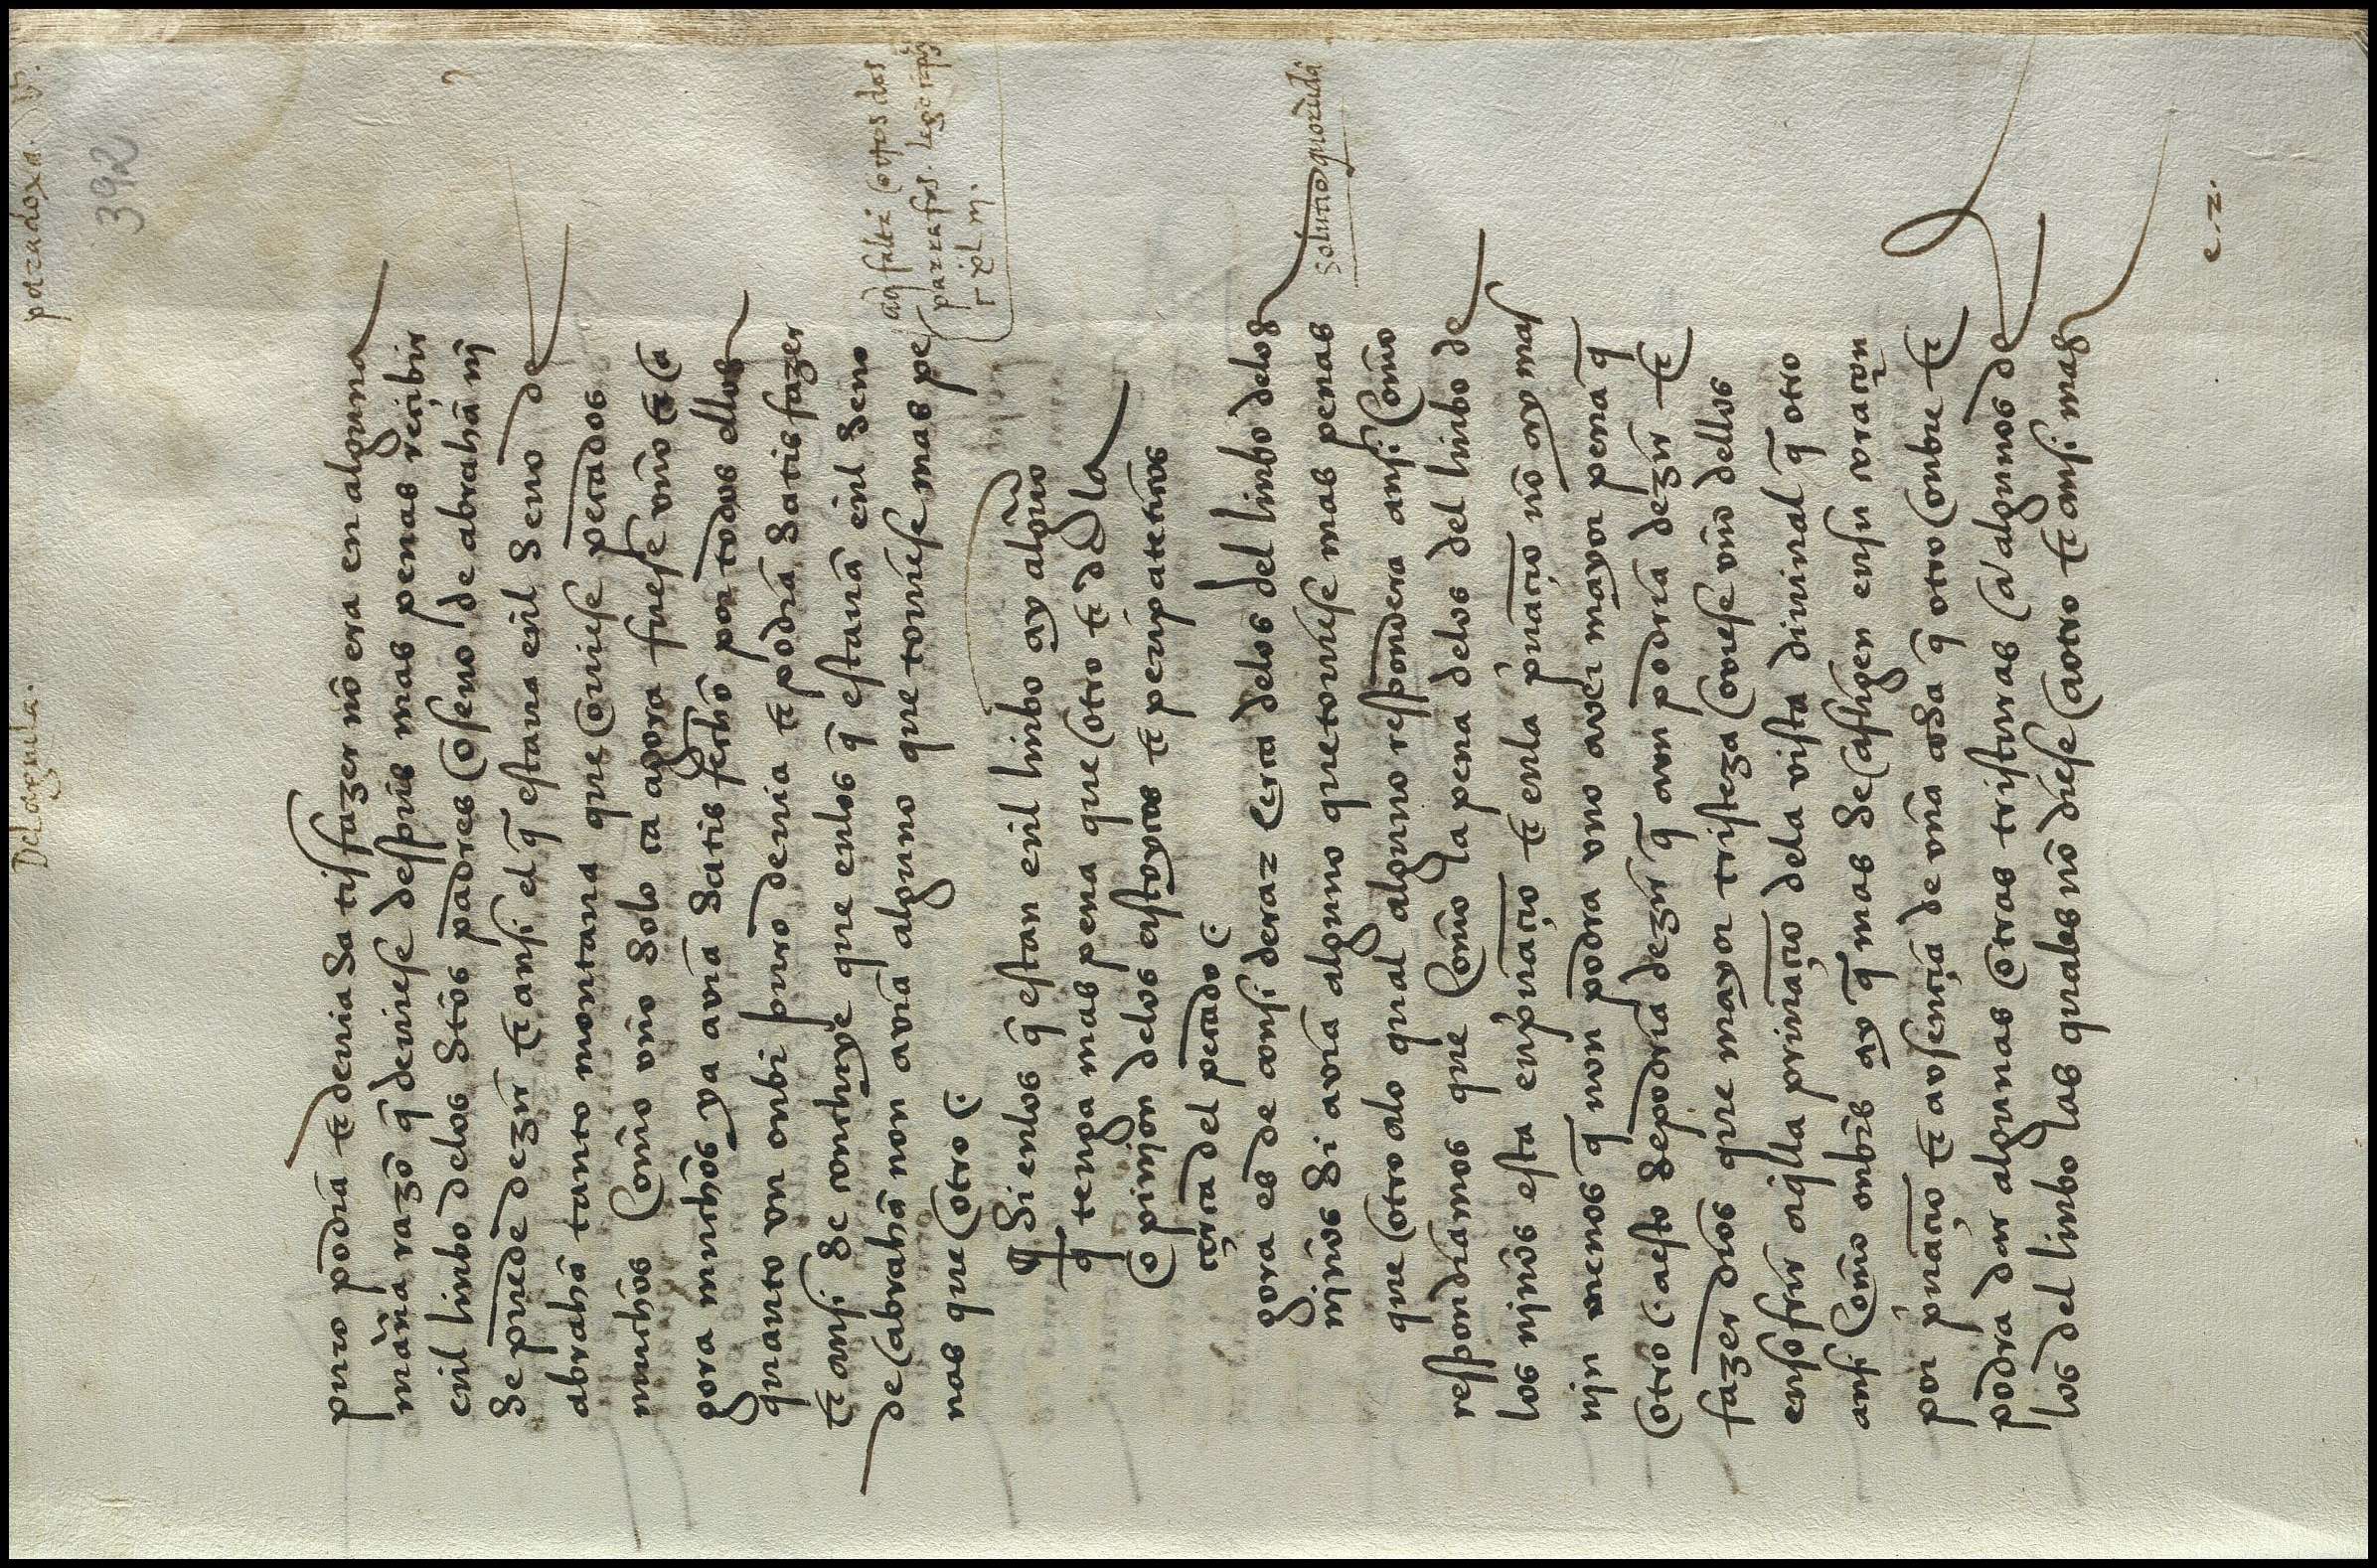 Del aguila.
paradoxa. v.
392
puro podiā τ̄ deuia satisfazer nō era en alguna
man̄a razō q̄ deuiese despues mas penas reçibir
enl linbo delos s̄tos padres o seno de abrahā nj̄
se puede dezir τ̄ ansi el q̄ estaua enl seno de
abrahā tanto montaua que ouiese pecados
muchos com̄o vn̄o solo ca agora fuese vn̄o τ̄ a
gora muchos ya auiā satis fecho por todos ellos
quanto vn onbr̄ puro deuia τ̄ podiā satisfazer
τ̄ ansi se concluye que enlos q̄ estauā enl seno
de abrahā non auiā alguno que touiese mas pe
nas que otro .
aq̄ falta
¶ Si enlos q̄ estan enl linbo ay alguno
q̄ tenga mas pena que otro τ̄ dela
opinjon delos astoycos τ̄ peripateticos
çerca del pecado .
gora es de consideraz cerca delos del limbo delos
solutio
njn̄os si aviā alguno que touiese mas penas
que otro alo qual alguno respondera ansi com̄o
respondiamos que com̄o la pena delos del linbo de
los njn̄os esta en p̄uaçio τ̄ enla p̄uaçio nō ay mas
njn menos q̄ non podra vno aver mayor pena q̄
otro . aesto se podria dezir q̄ avn podria dezir τ̄
fazer dios que mayor tristeza oviese vn̄o dellos
en sofrir aq̄lla priuaçio dela vista diuinal q̄ otro
ansi com̄o onbr̄s ay q̄ mas se afligen en su coraçon
por p̄uaçio τ̄ avsençia de vn̄a cosa q̄ otro onbre τ̄
podra dar algunas otras tristuras a algunos de
los del linbo las quales nō diese a otro τ̄ ansi mas